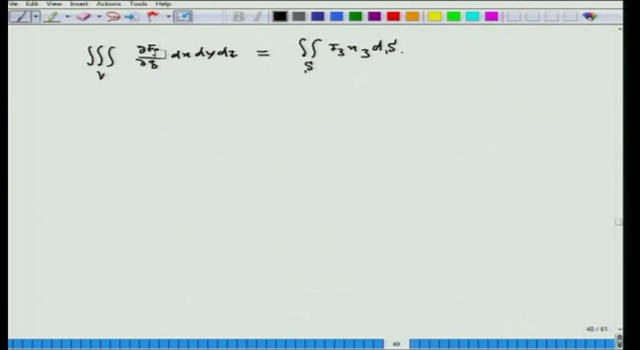 File Edit View Insert Actions Tools Help
∭_V ∂F₃/∂z dx dy dz = ∬_S F₃ n₃ dS.
40 / 61
40